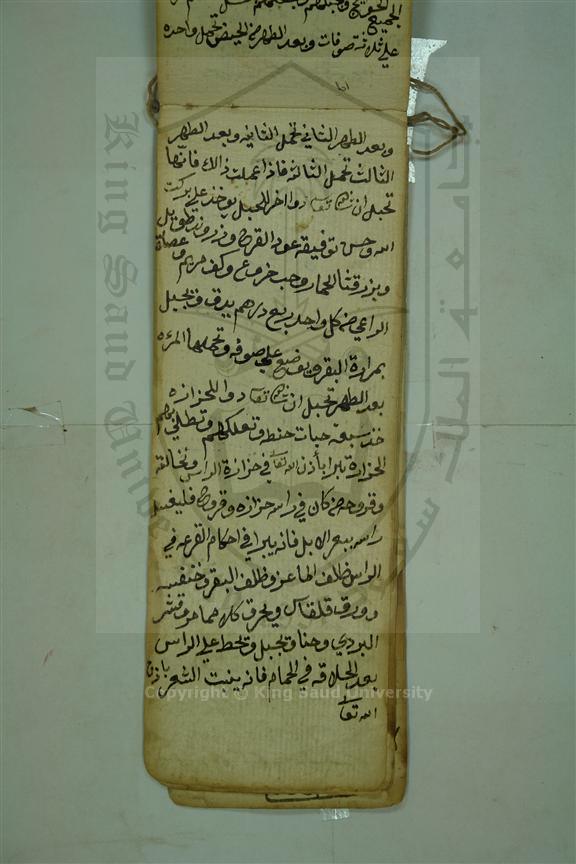 الجميع
علي ثلاثة صوفات وبعد الطهر من الحيض تحمل واحده
وبعد الطهر الثاني تحمل الثانيه وبعد الطهر
الثالث تحمل الثالثة فاذا عملت ذالك فانها
تحبل ان شاء الله تعا دوا اخر للحبل يوخذ علي بركت
الله وحسن توفيقه عود القرح
وبزر قثا الحمار وحب خروع وكف مريم وعصاة
الراعي من كل واحد ربع درهم يدق ويجبل
بمرارة البقر ويوضع علي صوفه وتحملها المره
بعد الطهر تحبل ان شاء الله تعا دوا للحزازه
خذ سبعة حبات حنطه وتعلكهم وتطلي بهم
الحزازة تبرا بأذن الله تعا في حزازة الراس ونخالته
وقروحه من كان في راسه حزازه وقروح فليغسل
راسه ببعر الابل فانه يبرا في احكام القرعه في
الراس ظلف الماعز وظلف البقر وخنفسه
وورق قلقاس ويحرق كلا منهما حرق قشر
البردي وحنا ويجبل ويحط علي الراس
بعد الحلاقه في الحمام فانه ينبت الشعر باذن
الله تعا
Copyright © King Saud University
King Saud University
جامعة الملك سعود